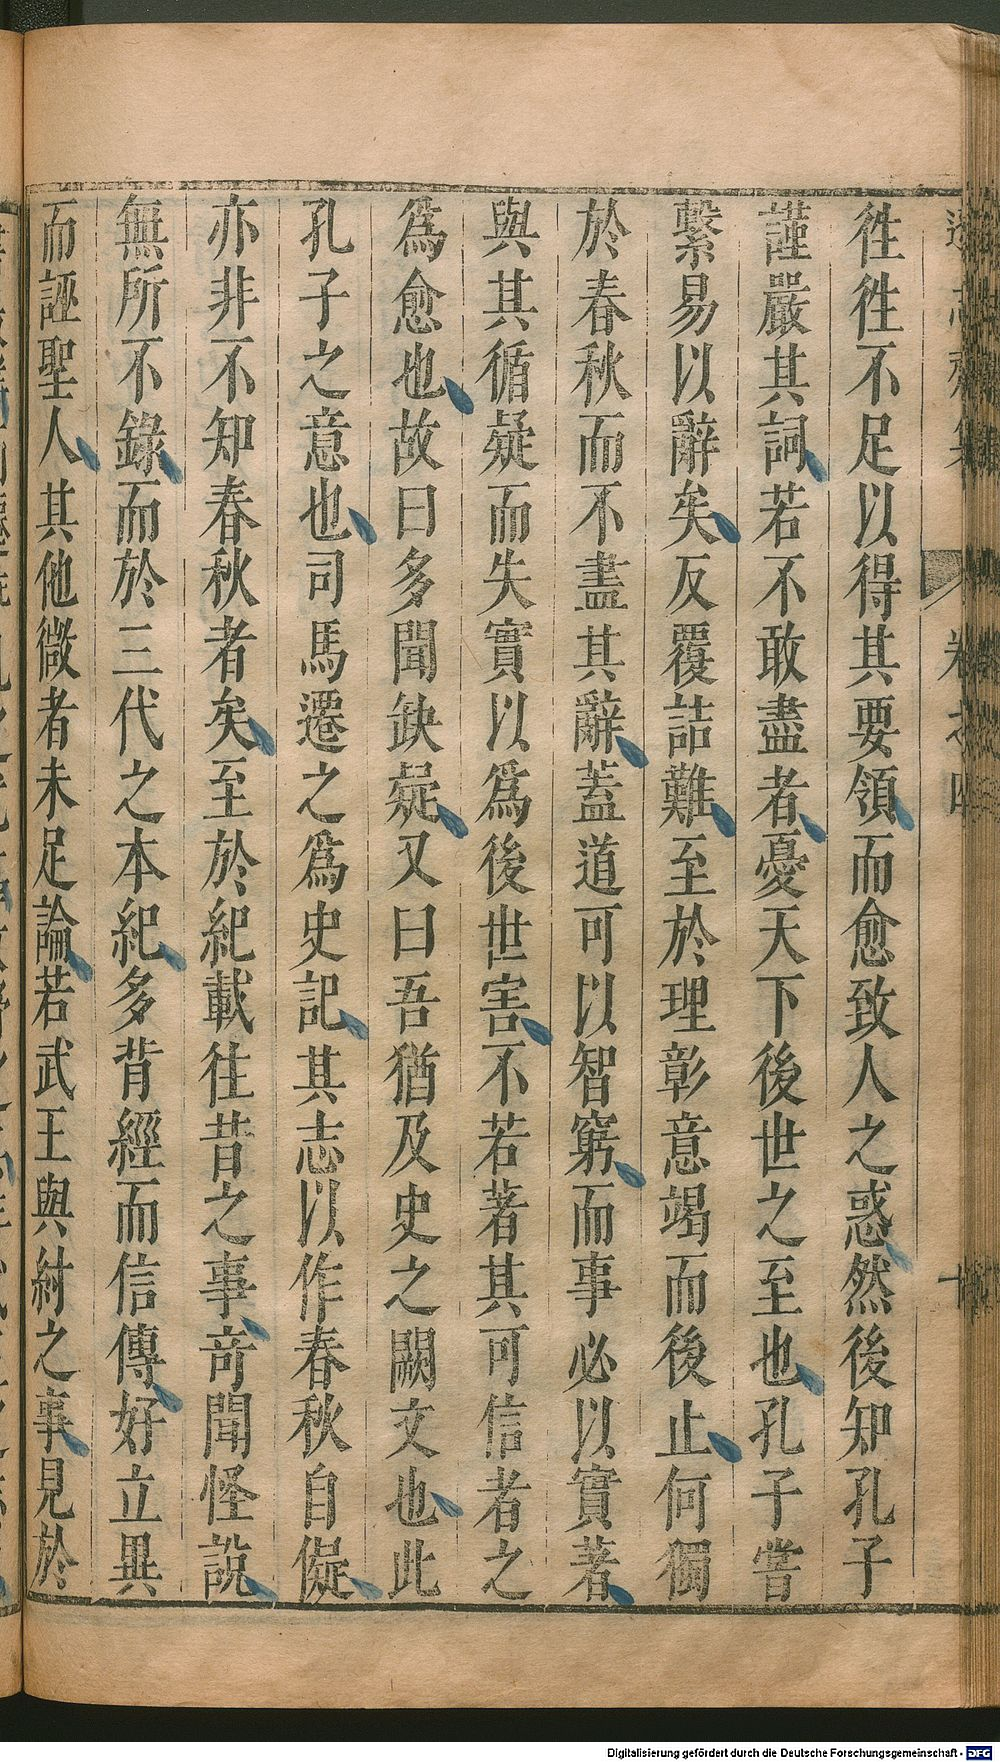 徃徃不足以得其要領而愈致人之惑然後知孔子
謹嚴其詞若不敢盡者憂天下後世之至也孔子嘗
繫易以辭矣反覆詰難至於理彰意竭而後止何獨
於春秋而不盡其辭葢道可以智窮而事必以實著
與其循疑而失實以爲後世害不若著其可信者之
爲愈也故曰多聞缺疑又曰吾猶及史之闕文也此
孔子之意也司馬遷之爲史記其志以作春秋自儗
亦非不知春秋者矣至於紀載往昔之事竒聞怪說
無所不錄而於三代之本紀多背經而信傳好立異
而誣聖人其他微者未足論若武王與紂之事見於
卷之四
Digitalisierung gefördert durch die Deutsche Forschungsgemeinschaft - DFG